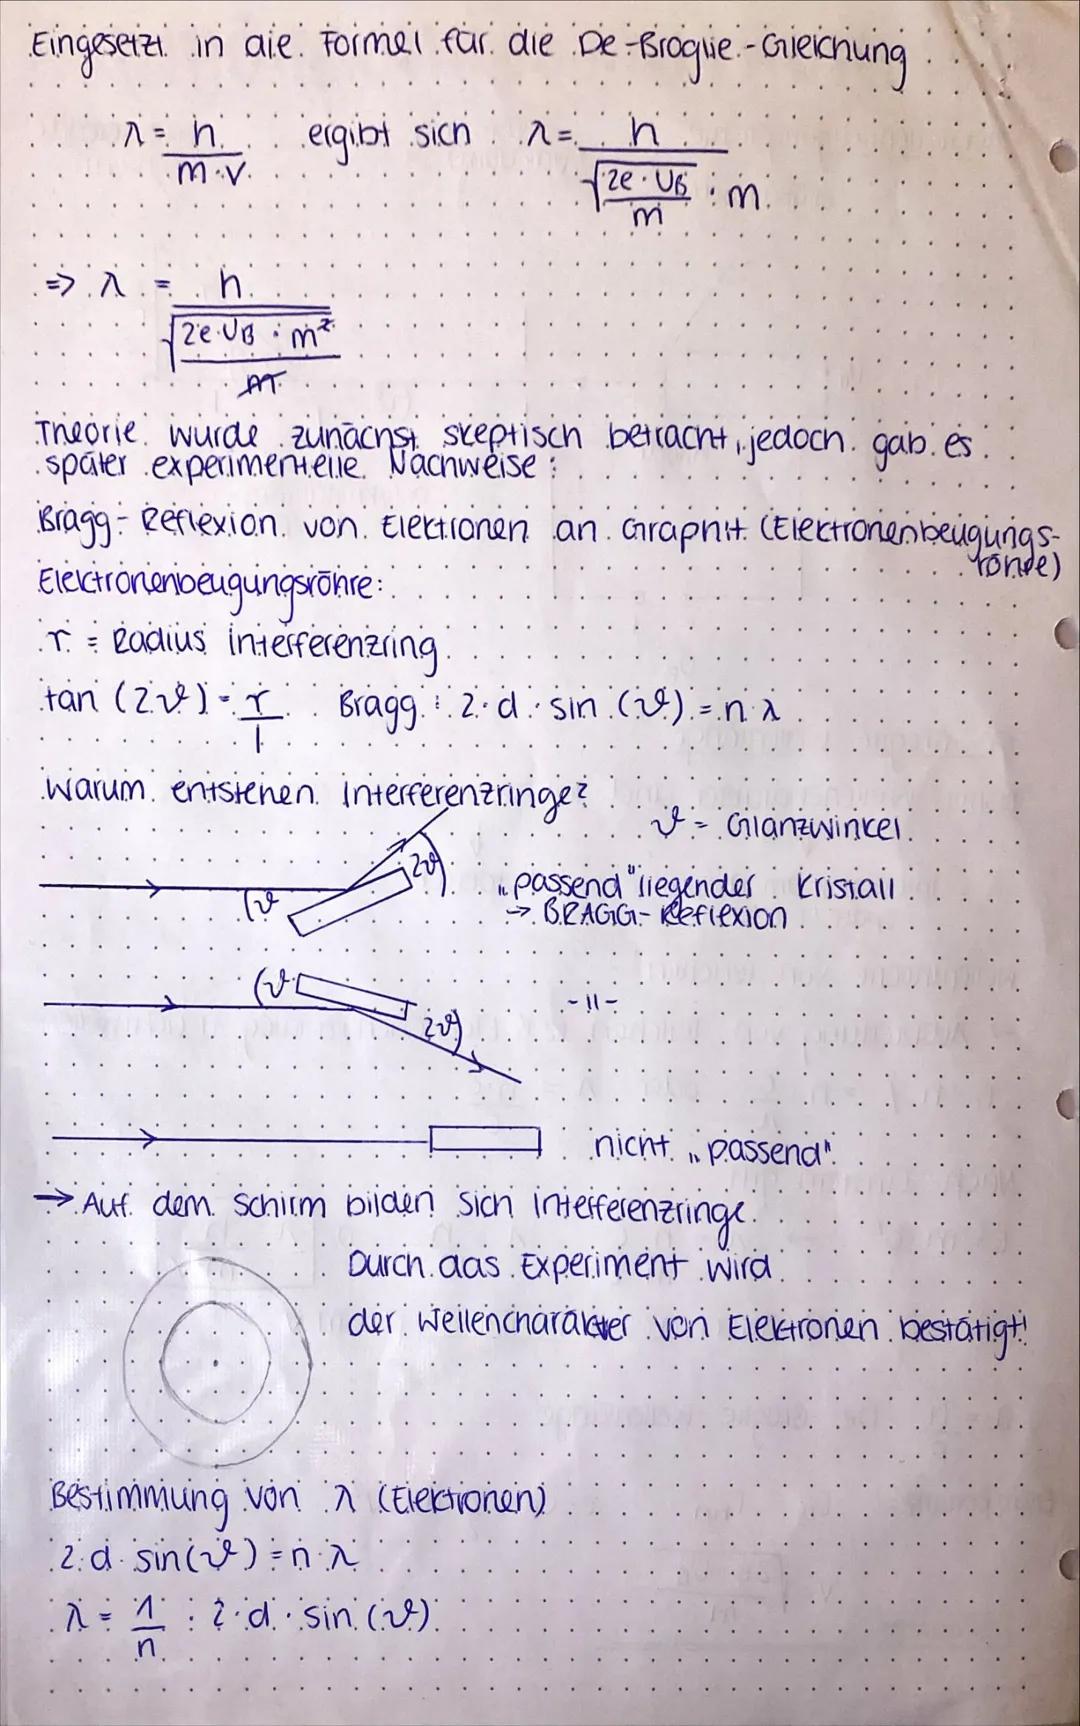 Eingesetzt in die Formel für die De-Broglie-Gleichung
λ = h / m·v ergibt sich λ = h / √(2e·UB / m) · m
=> λ = h / √(2e·UB · m² / m)
Theorie wurde zunächst skeptisch betracht, jedoch gab es
später experimentelle Nachweise:
Bragg-Reflexion von Elektronen an Graphit (Elektronenbeugungs-
röhre)
Elektronenbeugungsröhre:
r = Radius Interferenzring
tan (2ϑ) = r / l Bragg: 2·d·sin(ϑ) = n·λ
Warum entstehen Interferenzringe?
ϑ = Glanzwinkel
ϑ 2ϑ „passend" liegender Kristall
→ BRAGG-Reflexion
ϑ 2ϑ -||-
nicht „passend"
→ Auf dem Schirm bilden sich Interferenzringe
Durch das Experiment wird
der Wellencharakter von Elektronen bestätigt!
Bestimmung von λ (Elektronen)
2·d·sin(ϑ) = n·λ
λ = 1 / n · 2·d·sin(ϑ)